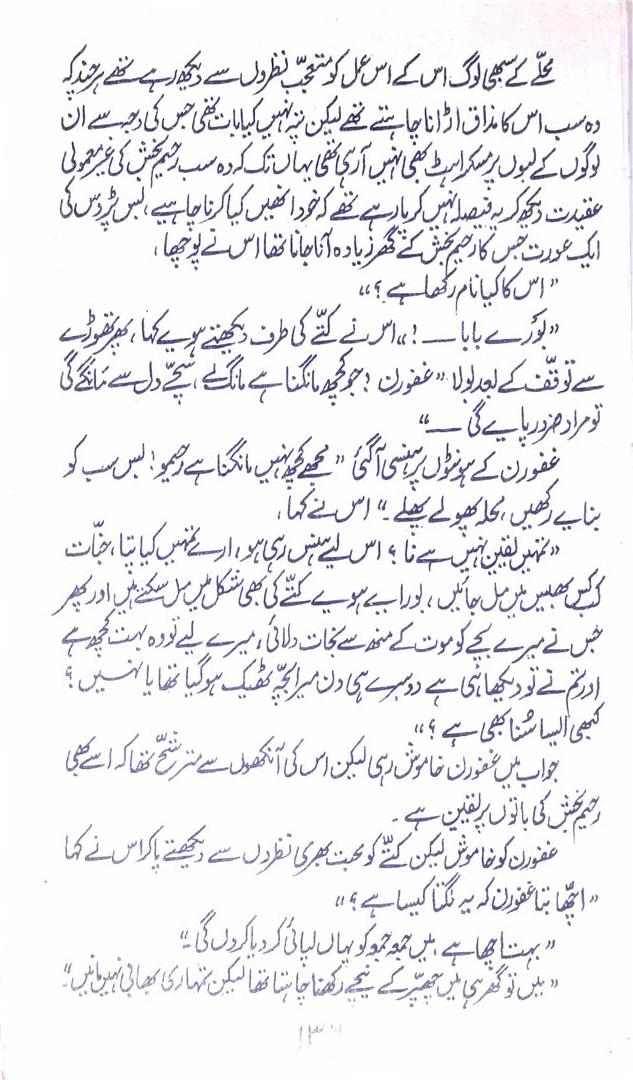 محلّے کے سبھی لوگ اس کے اس عمل کو متعجّب نظروں سے دیکھ رہے تھے ہرچند کہ
وہ سب اس کا مذاق اڑانا چاہتے تھے لیکن پتہ نہیں کیا بات تھی جس کی وجہ سے ان
لوگوں کے لبوں پر مسکراہٹ بھی نہیں آرہی تھی یہاں تک کہ وہ سب رحیم بخش کی غیر معمولی
عقیدت دیکھ کر یہ فیصلہ نہیں کر پا رہے تھے کہ خود انھیں کیا کرنا چاہیے، بس پڑوس کی
ایک عورت جس کا رحیم بخش کے گھر زیادہ آنا جانا تھا اس نے پوچھا،
"اس کا کیا نام رکھا ہے ؟"
"بَورے بابا — !" اس نے کتّے کی طرف دیکھتے ہویے کہا، پھر تھوڑے
سے توقّف کے بعد بولا "غفورن ! جو کچھ مانگنا ہے مانگ لے، سچّے دل سے مانگے گی
تو مراد ضرور پایے گی —"
غفورن کے ہونٹوں پر ہنسی آ گئی "مجھے کچھ نہیں مانگنا ہے رحیمو! بس سب کو
بنایے رکھیں، محلہ پھولے پھلے۔" اس نے کہا،
"تمہیں یقین نہیں ہے نا ؟ اس لیے ہنس رہی ہو، ارے تمہیں کیا پتا، جنّات
کب کس بھیس میں مل جائیں، بورایے ہویے کتّے کی بھی شکل میں مل سکتے ہیں اور پھر
جس نے میرے بچے کو موت کے منھ سے نجات دلائی، میرے لیے تو وہ بہت کچھ ہے
اور تم نے تو دیکھا ہی ہے دوسرے ہی دن میرا بچّہ ٹھیک ہو گیا تھا یا نہیں ؟
کبھی ایسا سُنا بھی ہے ؟"
جواب میں غفورن خاموش رہی لیکن اس کی آنکھوں سے مترشّح تھا کہ اسے بھی
رحیم بخش کی باتوں پر یقین ہے۔
غفورن کو خاموش لیکن کتّے کو محبت بھری نظروں سے دیکھتے پا کر اس نے کہا
"اچّھا بتا غفورن کہ یہ لگتا کیسا ہے ؟"
"بہت اچھا ہے، میں جمعہ جمعہ کو یہاں لپائی کر دیا کروں گی۔"
"میں تو گھر ہی میں چھپّر کے نیچے رکھنا چاہتا تھا لیکن تمہاری بھابی نہیں مانیں۔"